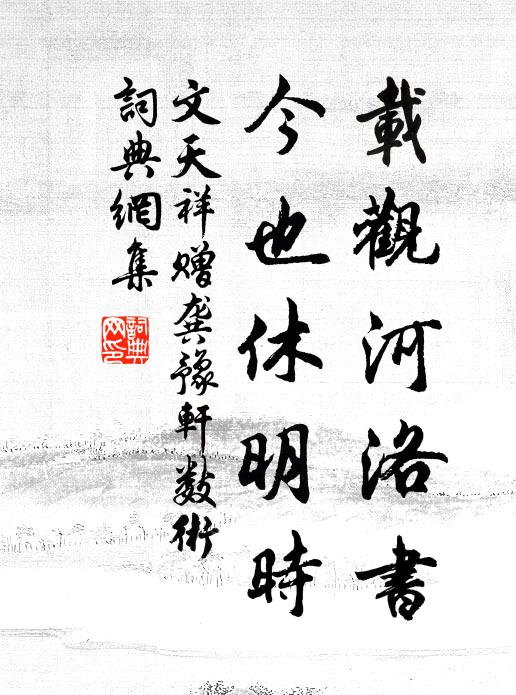 載觀河洛書
今也休明時
文天祥贈龔豫軒數術
詞典網集
詞典
网印